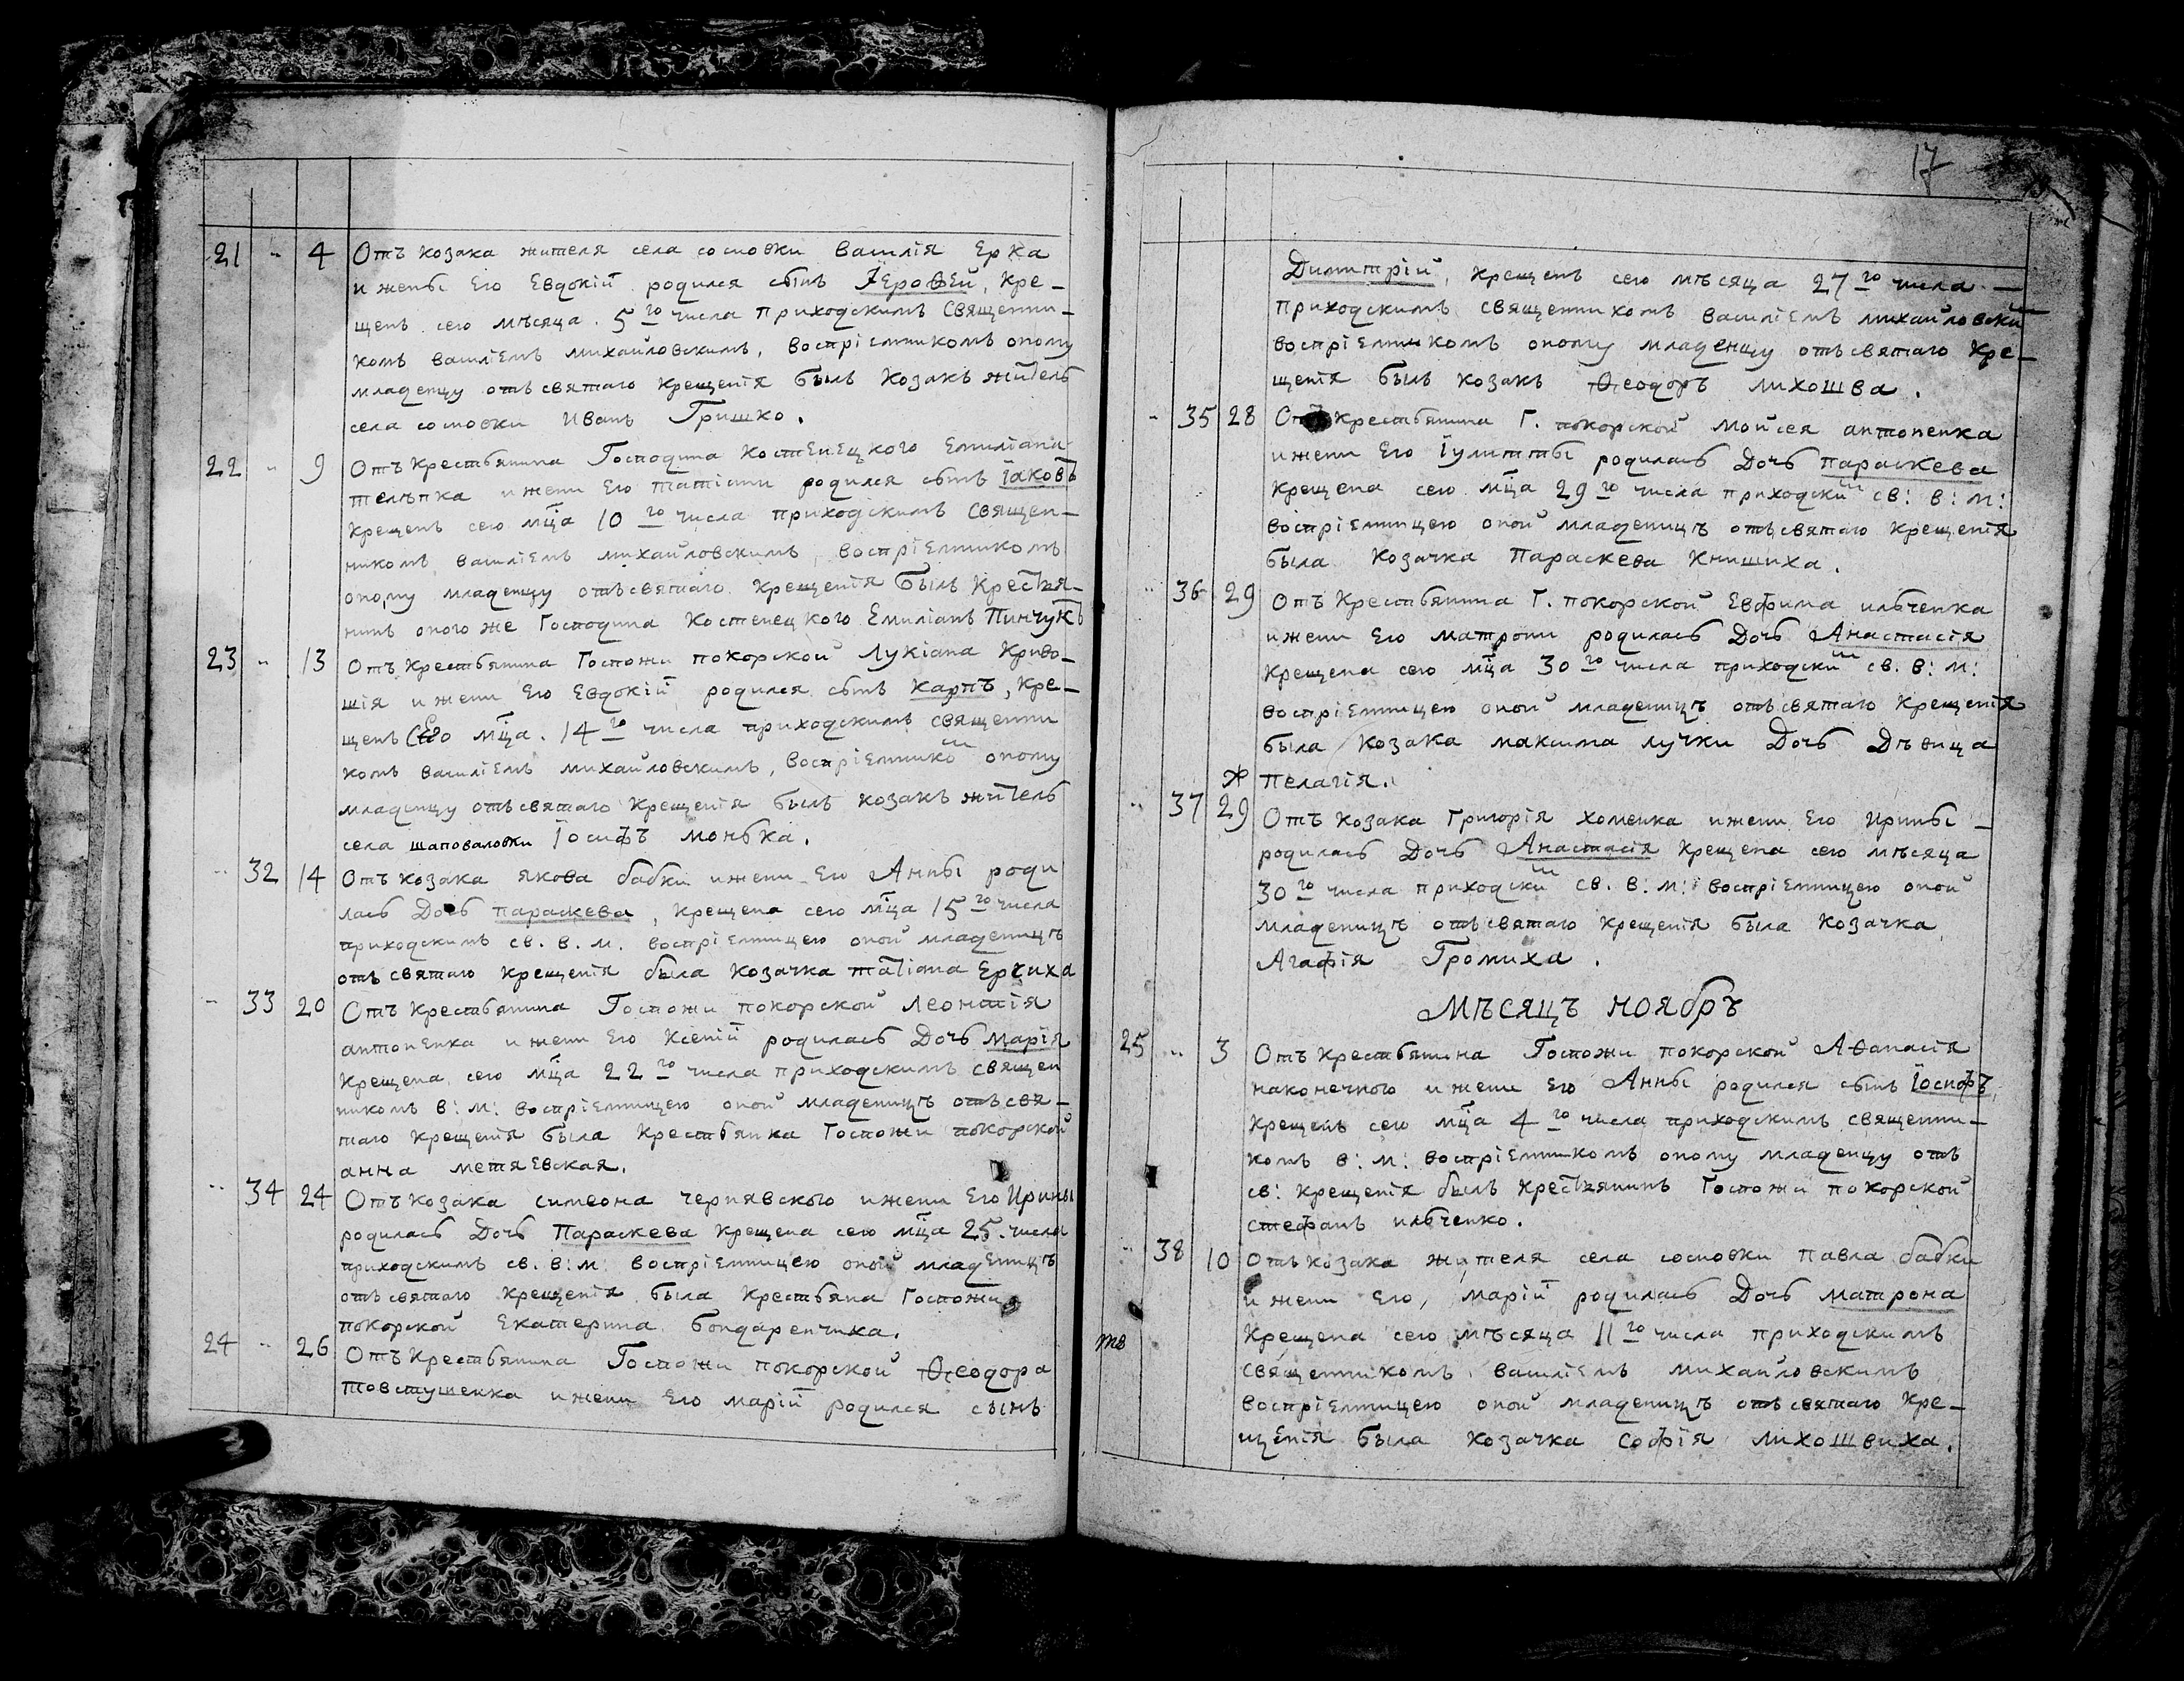 21 " 4 Отъ козака жителя села сосновки василія Ерка
и жены Его Евдокій родился сынъ Іерофей, кре-
щенъ сего мѣсяца 5го числа приходскимъ священни-
комъ василіемъ михайловскимъ, воспріемникомъ оному
младенцу отъ святаго крещенія былъ козакъ житель
села сосновки Иванъ Гришко.
22 " 9 Отъ крестьянина Господина Костенецкого Емиліана
телѣпка и жени Его татіани родился сынъ Іаковъ
крещенъ сего мца 10го числа приходскимъ священ-
никомъ василіемъ михайловскимъ, воспріемникомъ
оному младенцу отъ святаго крещенія былъ крестья-
нинъ оного же Господина Костенецкого Емиліанъ Пинчукъ
23 " 13 Отъ крестьянина Госпожи покорской Лукіана криво-
шія и жени Его Евдокій родился сынъ Карпъ, кре-
щенъ сего мца 14го числа приходскимъ священни
комъ василіемъ михайловскимъ, воспріемникомъ оному
младенцу отъ святаго крещенія былъ козакъ житель
села шаповаловки Іосифъ монька.
" 32 14 Отъ козака якова бабки и жени Его Анны роди
лась Дочь параскева, крещена сего мца 15го числа
приходскимъ св. в. м. воспріемницею оной младеницѣ
отъ святаго крещенія была козачка таtіана Ерчиха
" 33 20 Отъ крестьянина Госпожи покорской леонтія
антоненка и жени Его Ксеній родилась Дочь марія
крещена сего мца 22го числа приходскимъ священ
никомъ в: м: воспріемницею оной младеницѣ отъ свя-
таго крещенія была крестьянка Госпожи покорской
анна метяевская.
" 34 24 Отъ козака симеона чернявского и жени Его Ирины
родилась Дочь Параскева крещена сего мца 25. числа
приходскимъ св. в: м: воспріемницею оной младеницѣ
отъ святаго крещенія была крестьяна Госпожи
покорской Екатерина бондаренчиха.
24 " 26 Отъ крестьянина Госпожи покорской Ѳеодора
товстушенка и жени Его марій родился сынъ
17
Димитрій, крещенъ сего мѣсяца 27го числа —
приходскимъ священникомъ василіемъ михайловски
воспріемникомъ оному младенцу отъ святаго кре-
щенія былъ козакъ Ѳеодоръ лихошва.
" 35 28 Отъ крестьянина Г. покорской Мойсея антоненка
и жени Его Іулитты родилась Дочь параскева
крещена сего мца 29го числа приходским св: в: м:
воспріемницею оной младеницѣ отъ святаго крещенія
была козачка Параскева Книшиха.
" 36 29 Отъ крестьянина Г. покорской Евфима ильченка
и жени Его матрони родилась Дочь Анастасія
крещена сего мца 30го числа приходским св. в: м:
воспріемницею оной младеницѣ отъ святаго крещенія
была козака максима лучки Дочь Дѣвица
* пелагія.
" 37 29 Отъ козака Григорія хоменка и жени Его Ирины -
родилась Дочь Анастасія крещена сего мѣсяца
30го числа приходским св. в: м: воспріемницею оной
младеницѣ отъ святаго крещенія была козачка
Агафія Громиха.
Мѣсяцъ ноябръ
25 " 3 Отъ крестьянина Госпожи покорской Аѳанасія
наконечного и жени Его Анны родился сынъ Іосифъ,
крещенъ сего мца 4го числа приходскимъ священни-
комъ в: м: воспріемникомъ оному младенцу отъ
св: крещенія былъ крестьянинъ Госпожи покорской
стефанъ ильченко.
" 38 10 Отъ козака жителя села сосновки павла бабки
и жени Его, марій родилась Дочь матрона
крещена сего мѣсяца 11го числа приходскимъ
священникомъ василіемъ михайловскимъ
воспріемницею оной младеницѣ отъ святаго кре-
щенія была козачка софія лихошвиха.